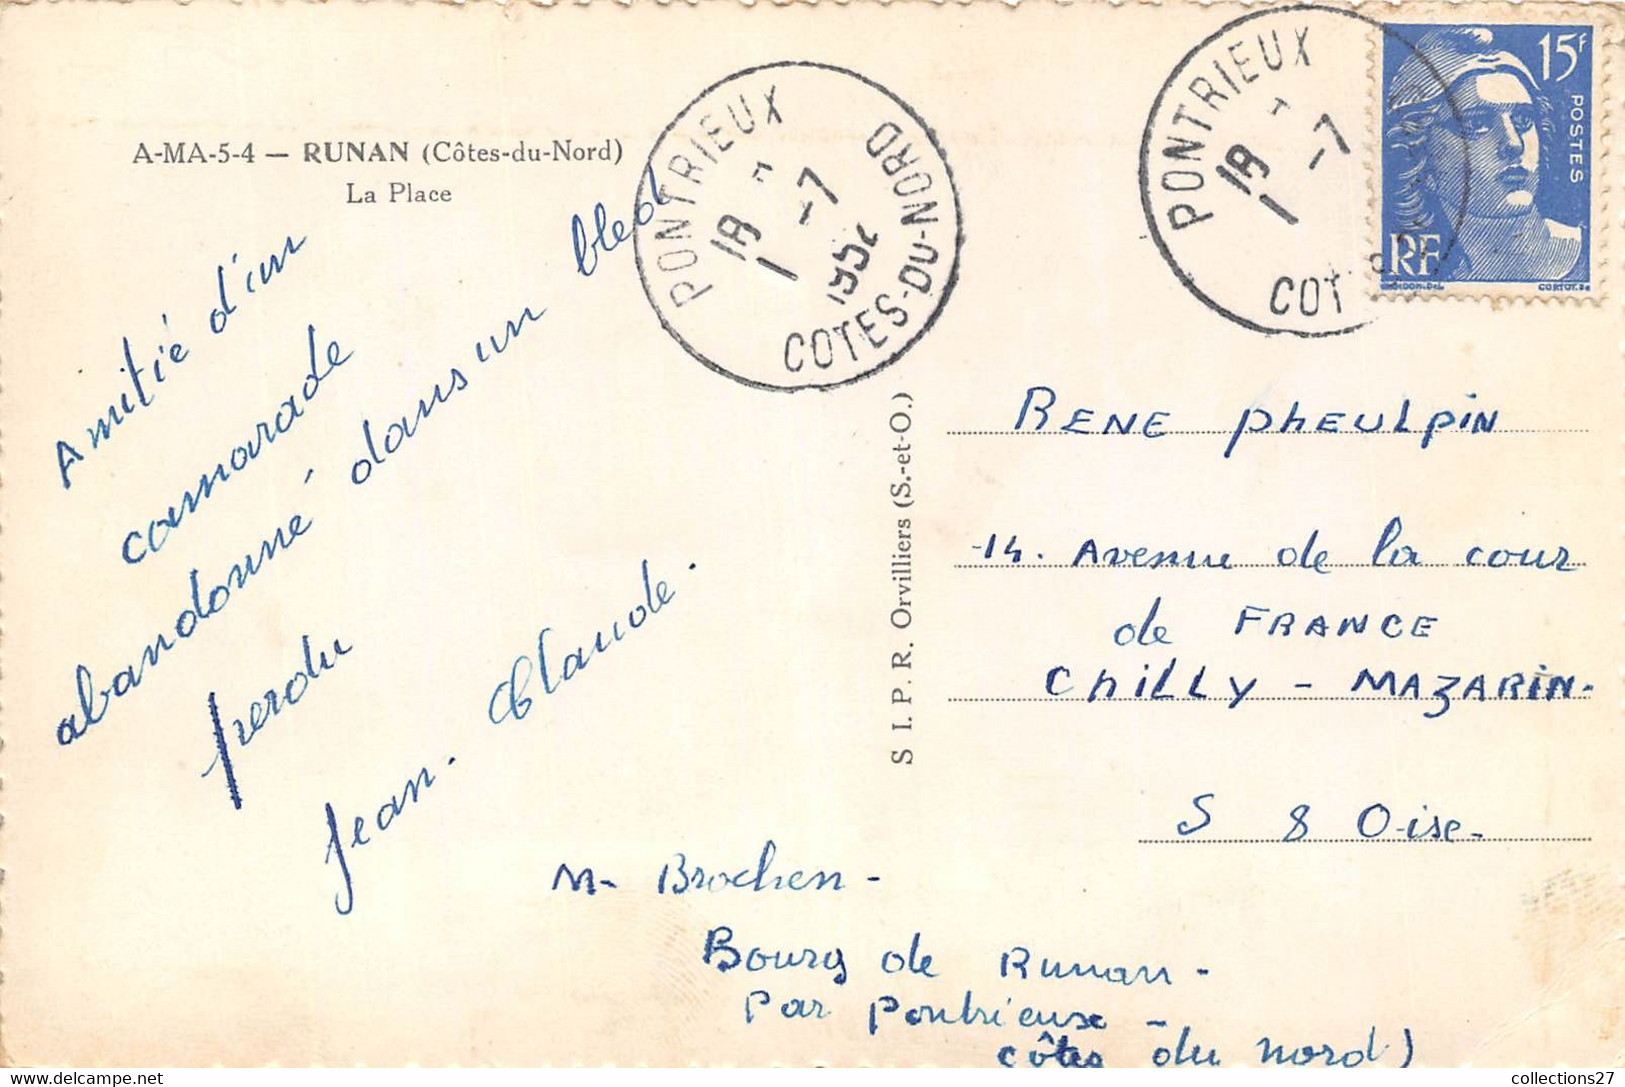 A-MA-5-4 — RUNAN (Côtes-du-Nord)
La Place
Amitié d'un
camarade
abandonné dans un bled
perdu
Jean-Claude.
M- Brochen-
Bourg de Runan-
Par Pontrieux-
Côtes du Nord)
PONTRIEUX
18
1-7
1952
COTES-DU-NORD
PONTRIEUX
18
1-7
COT
15F
POSTES
RF
S I. P. R. Orvilliers (S.-et-O.)
RENE PhEULPIN
14. Avenue de la cour
de FRANCE
ChiLLY-MAZARIN.
S & Oise-
collections27